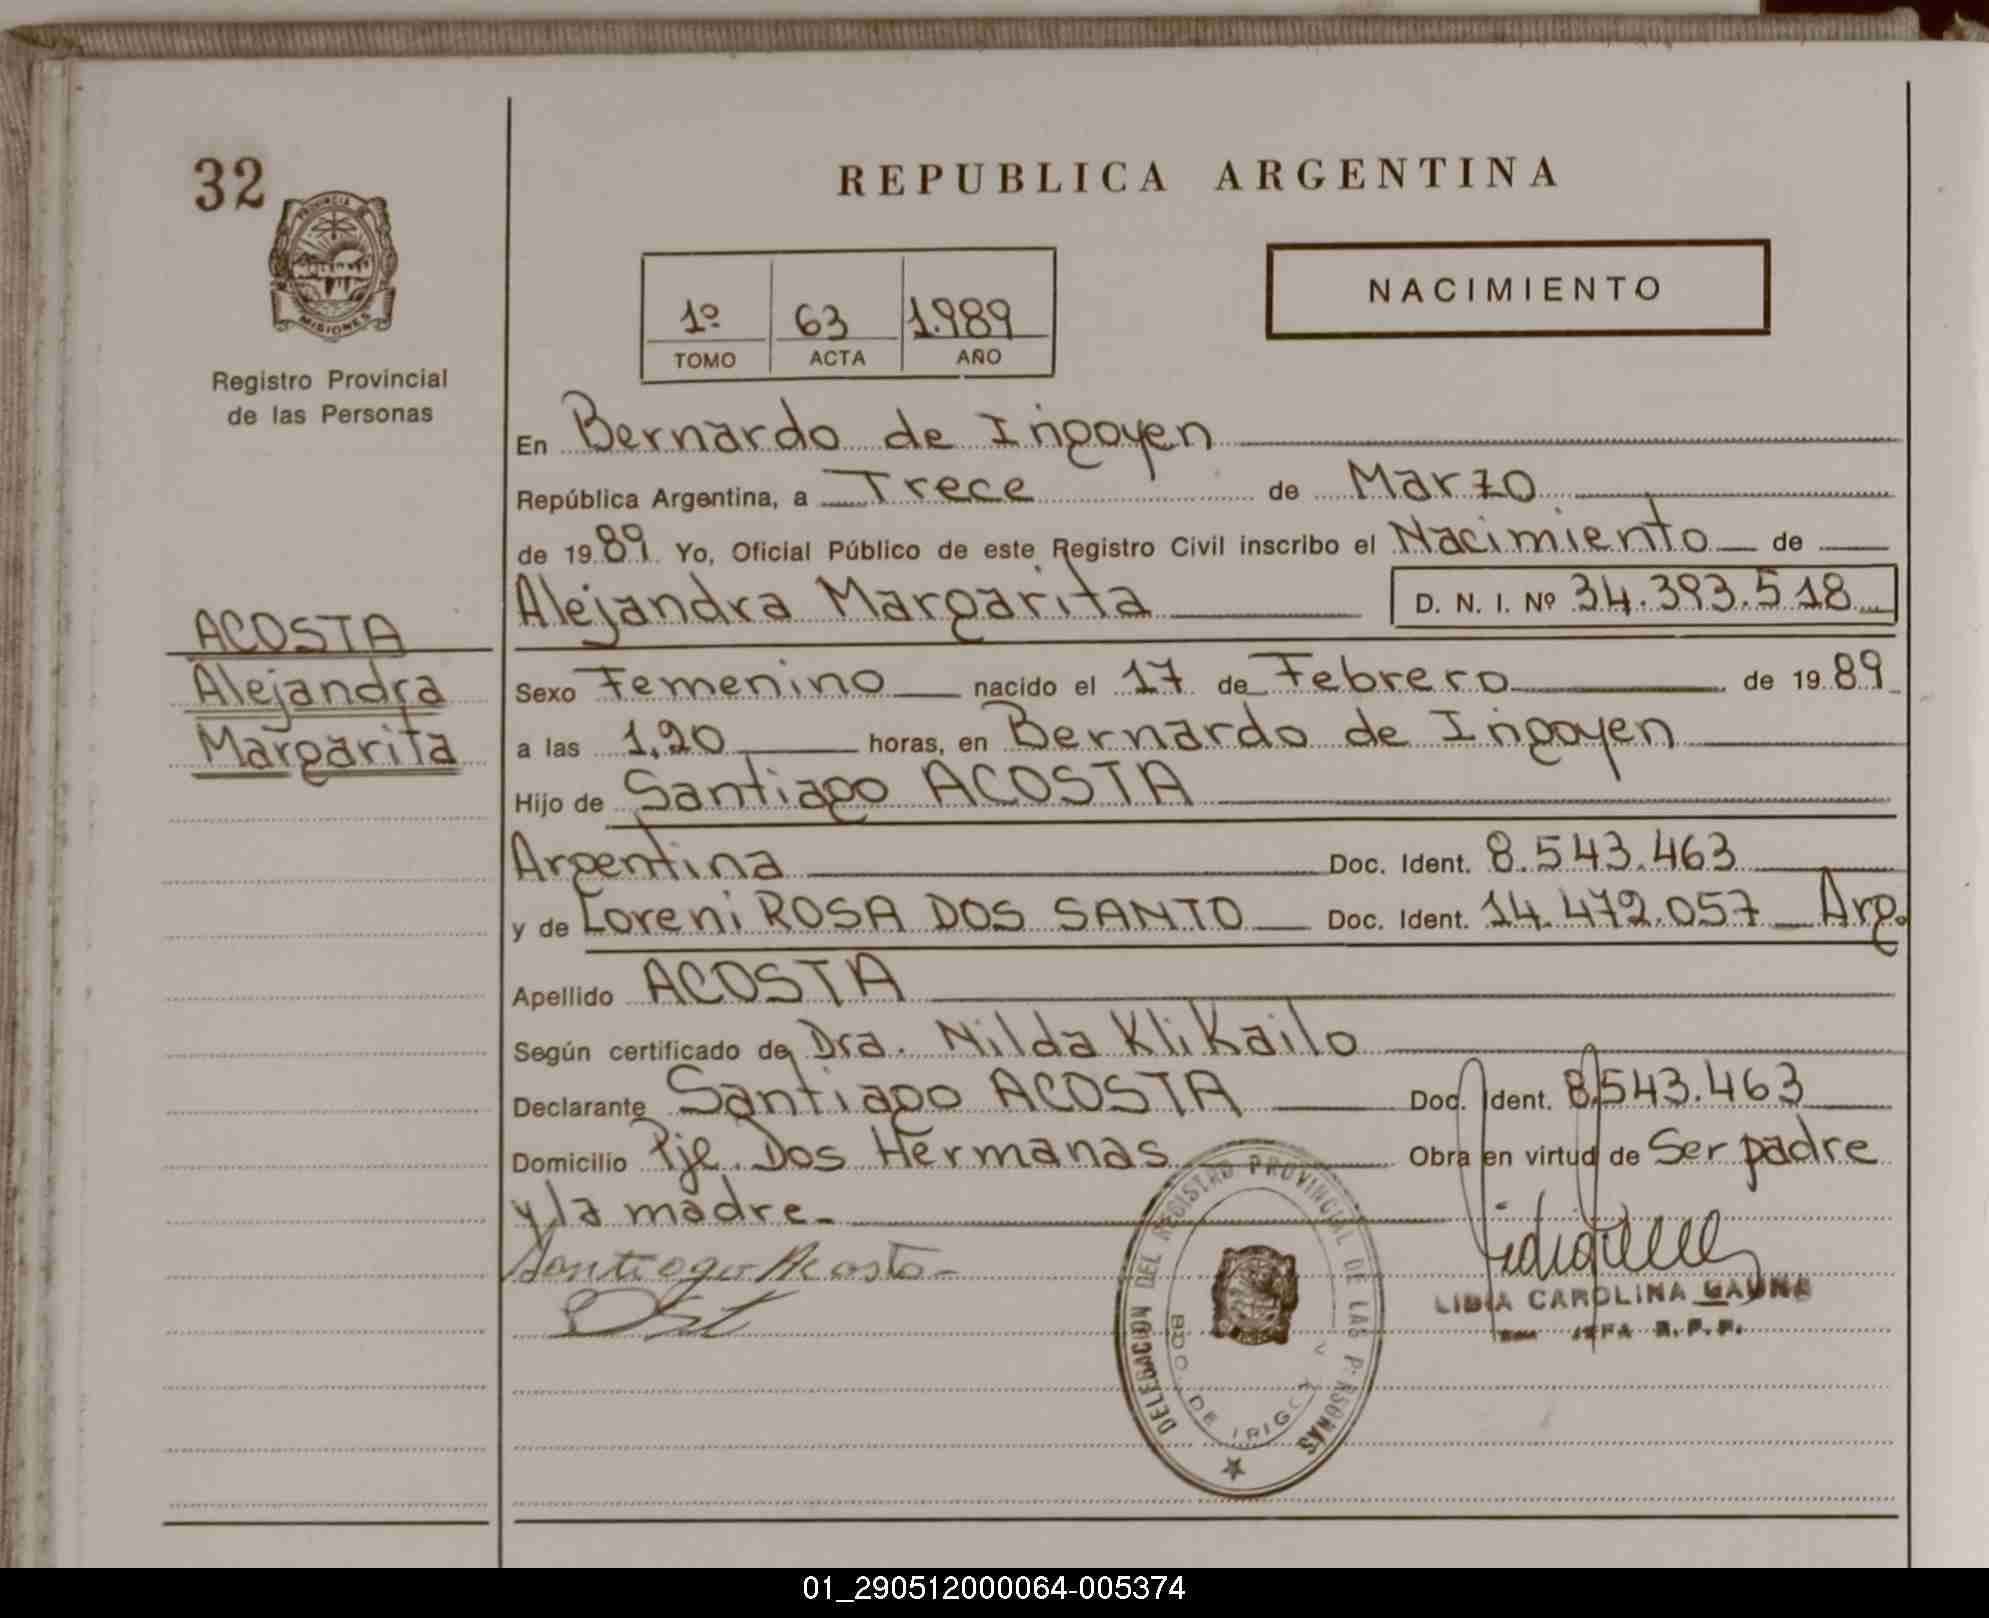 32
REPUBLICA ARGENTINA
PROVINCIA DE
MISIONES
Registro Provincial
de las Personas
1º 63 1.989
TOMO ACTA AÑO
NACIMIENTO
En Bernardo de Irigoyen
República Argentina, a Trece de Marzo
de 1989 Yo, Oficial Público de este Registro Civil inscribo el Nacimiento de
Alejandra Margarita D. N. I. Nº 34.393.518
ACOSTA
Alejandra
Margarita
Sexo Femenino nacido el 17 de Febrero de 1989
a las 1,20 horas, en Bernardo de Irigoyen
Hijo de Santiago ACOSTA
Argentina Doc. Ident. 8.543.463
y de Loreni ROSA DOS SANTO Doc. Ident. 14.472.057 Arg.
Apellido ACOSTA
Según certificado de Dra. Nilda KliKailo
Declarante Santiago ACOSTA Doc. Ident. 8.543.463
Domicilio Pje. Dos Hermanas Obra en virtud de Ser padre
y la madre.
Santiago Acosta
DELEGACION DEL REGISTRO PROVINCIAL DE LAS PERSONAS
BDO. DE IRIGOYEN
LIDIA CAROLINA GAUNA
JEFA R. P. P.
01_290512000064-005374